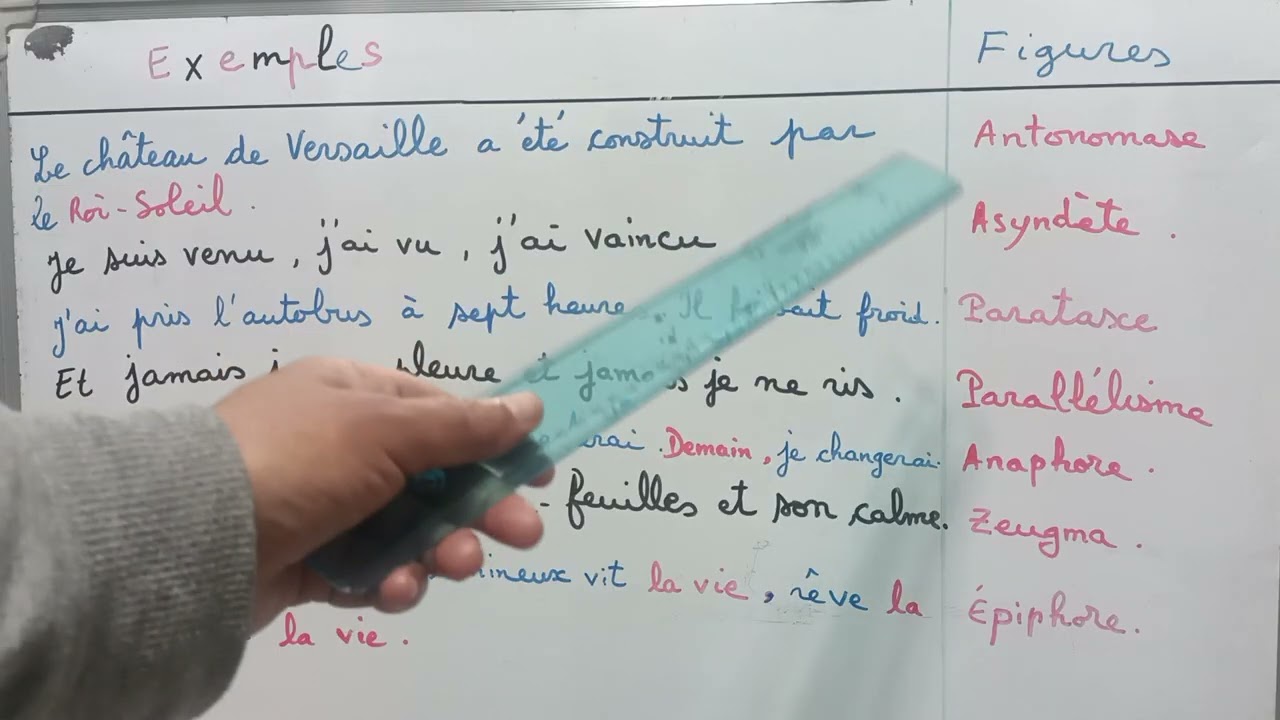 Exemples
Figures
Le château de Versaille a été construit par
Antonomase
le Roi-Soleil.
Je suis venu, j'ai vu, j'ai vaincu
Asyndète.
J'ai pris l'autobus à sept heure . Il froid.
Parataxe
Et jamais pleure et je ne ris.
Parallélisme
Demain, je changerai.
Anaphore.
- feuilles et son calme.
Zeugma.
vit la vie, rêve la
Épiphore.
la vie.